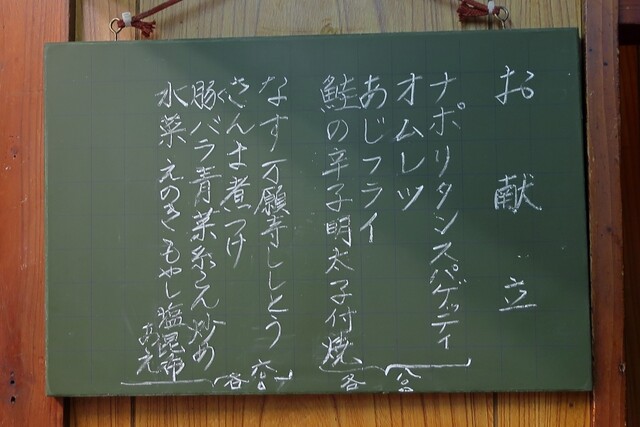 お献立
ナポリタンスパゲッティ
オムレツ
あじフライ
鮭の辛子明太子付焼
各 八〇〇
なす万願寺ししとう
さんま煮つけ
豚バラ青菜糸こん炒め
水菜えのきもやし塩昆布あえ
各 六〇〇